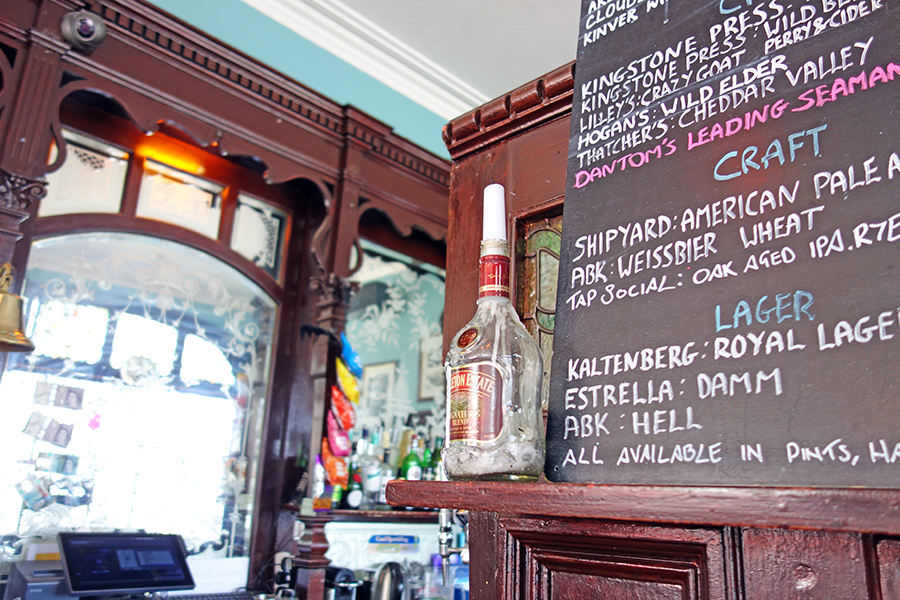 CLOUD
KINVER
KINGSTONE PRESS:
KINGSTONE PRESS: WILD BE
LILLEY'S: CRAZY GOAT PERRY & CIDER
HOGAN'S: WILD ELDER
THATCHER'S: CHEDDAR VALLEY
DANTOM'S LEADING SEAMAN
CRAFT
SHIPYARD: AMERICAN PALE A
ABK: WEISSBIER WHEAT
TAP SOCIAL: OAK AGED IPA. RYE
LAGER
KALTENBERG: ROYAL LAGER
ESTRELLA: DAMM
ABK: HELL
ALL AVAILABLE IN PINTS, HA
ETON ESTATE
GNATURE
BLEND